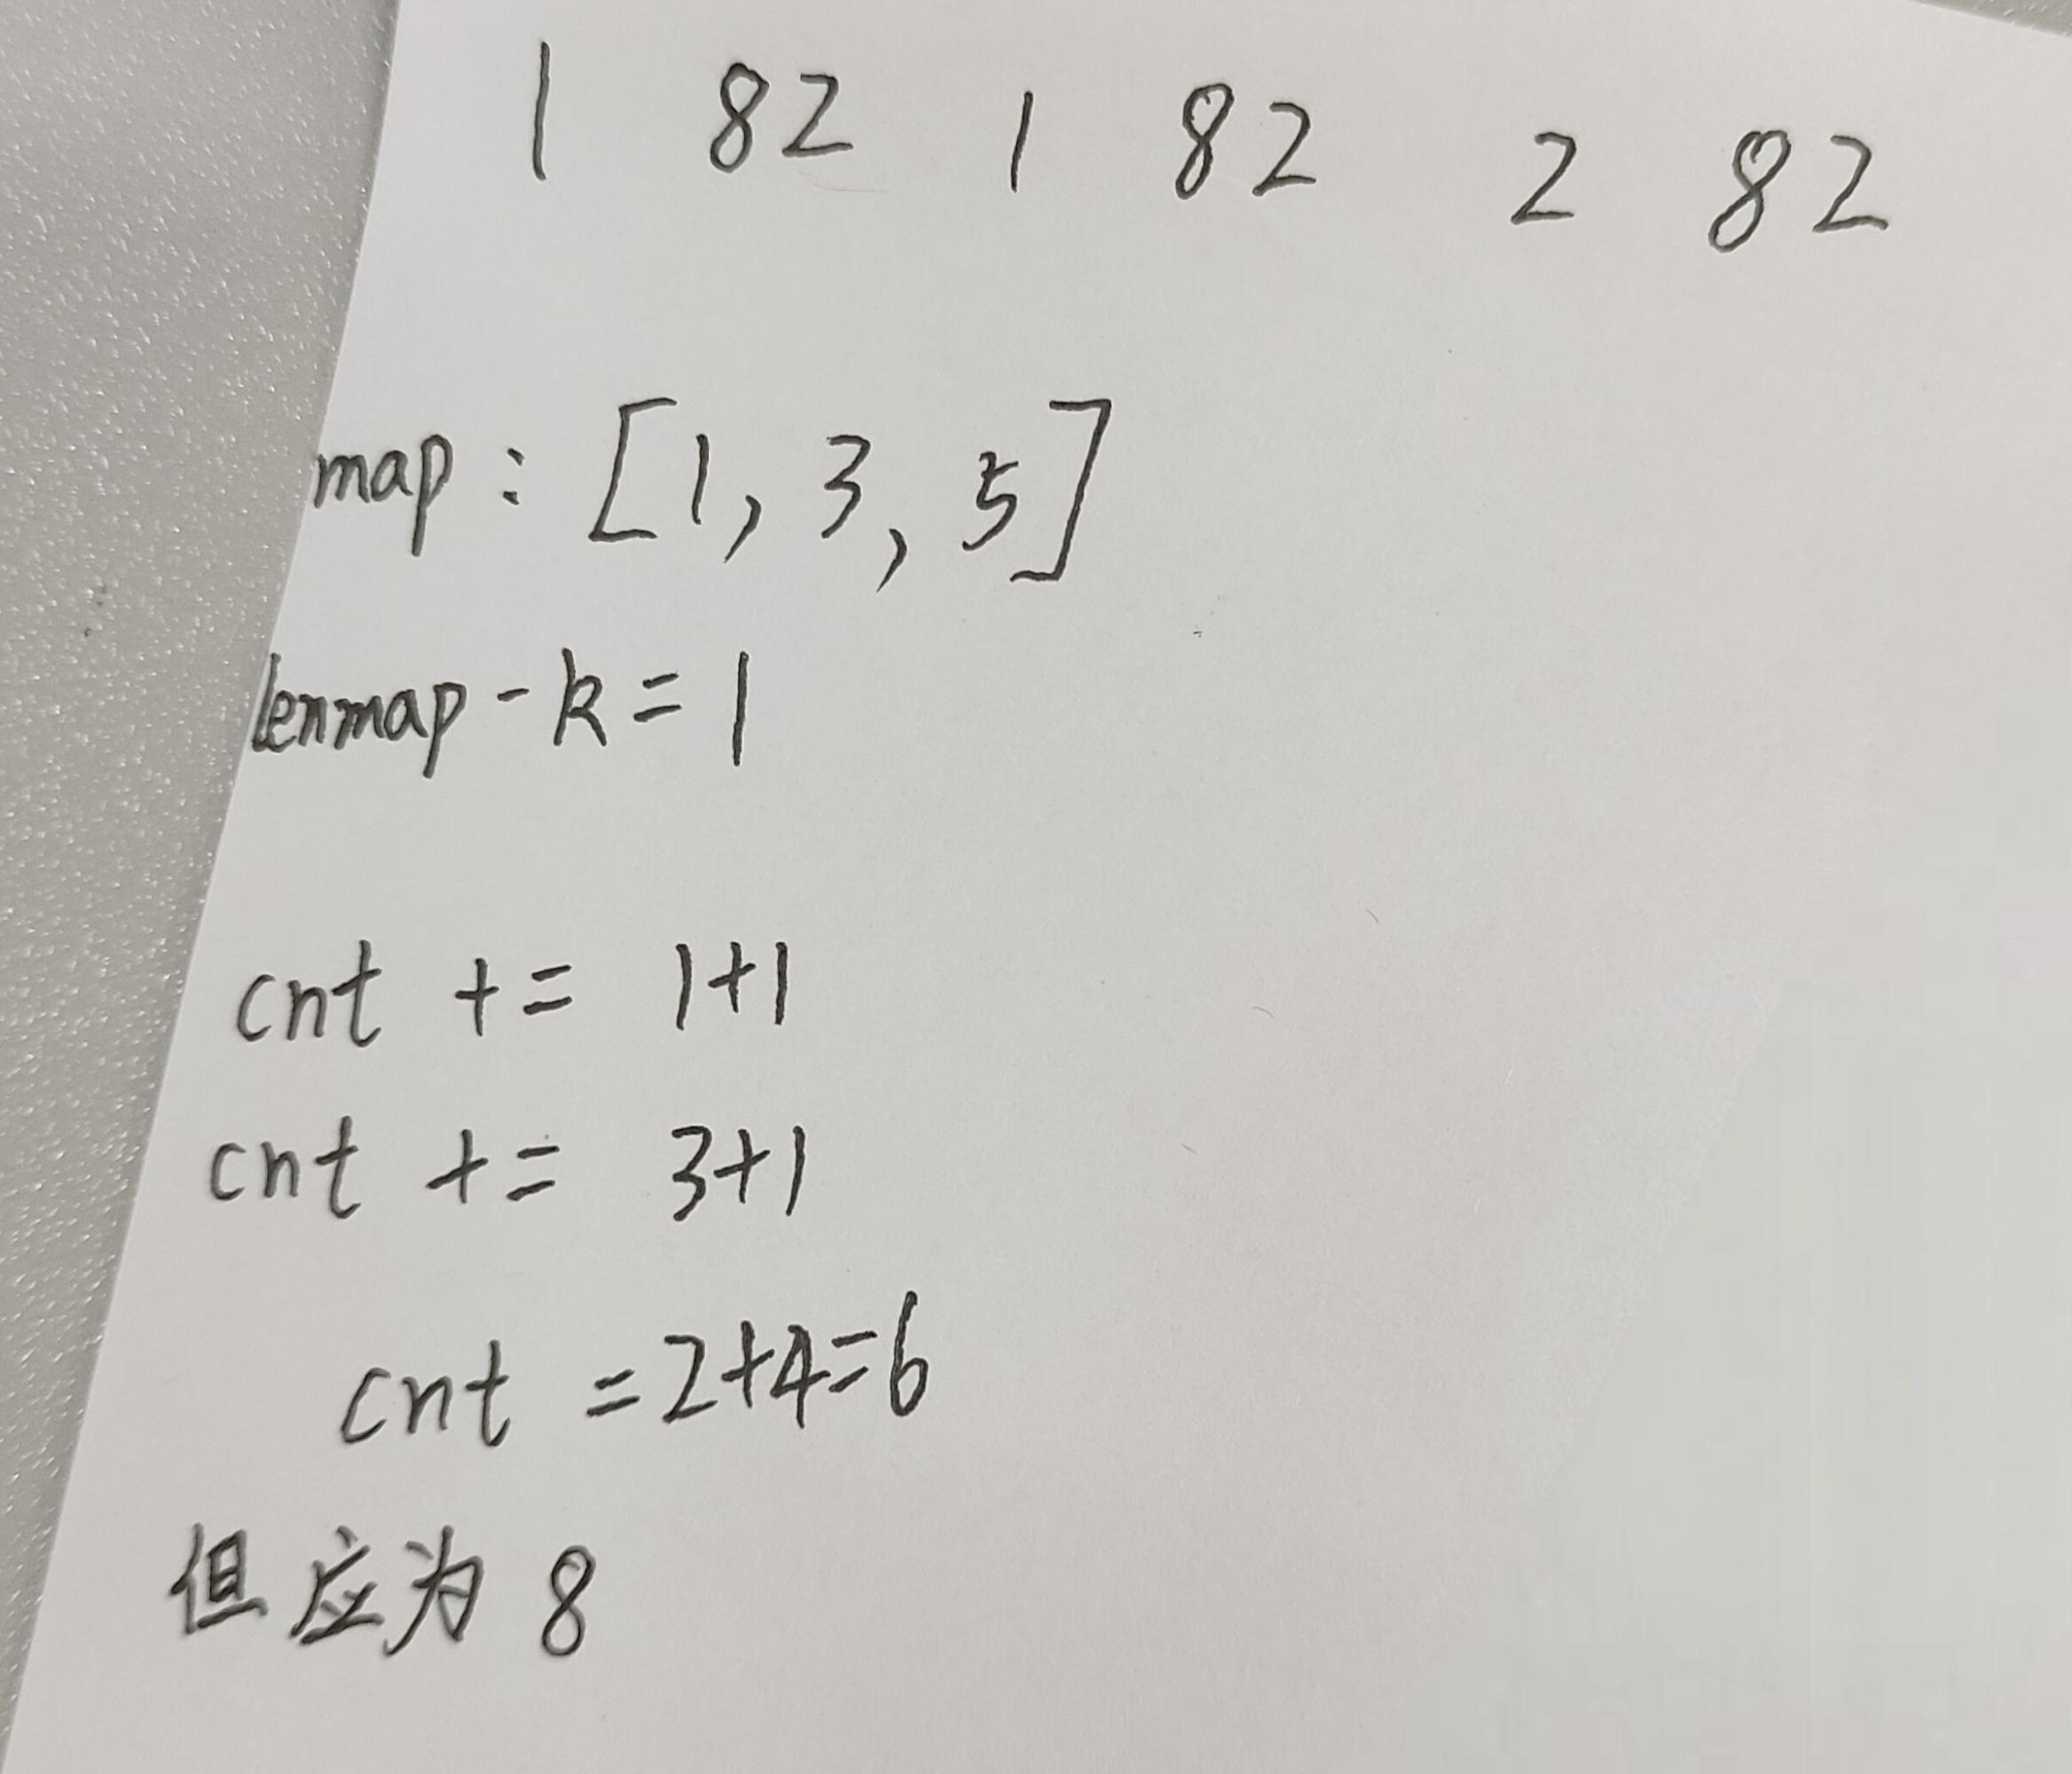 1 82 1 82 2 82
map : [1, 3, 5]
lenmap - k = 1
cnt += 1+1
cnt += 3+1
cnt = 2+4=6
但应为 8